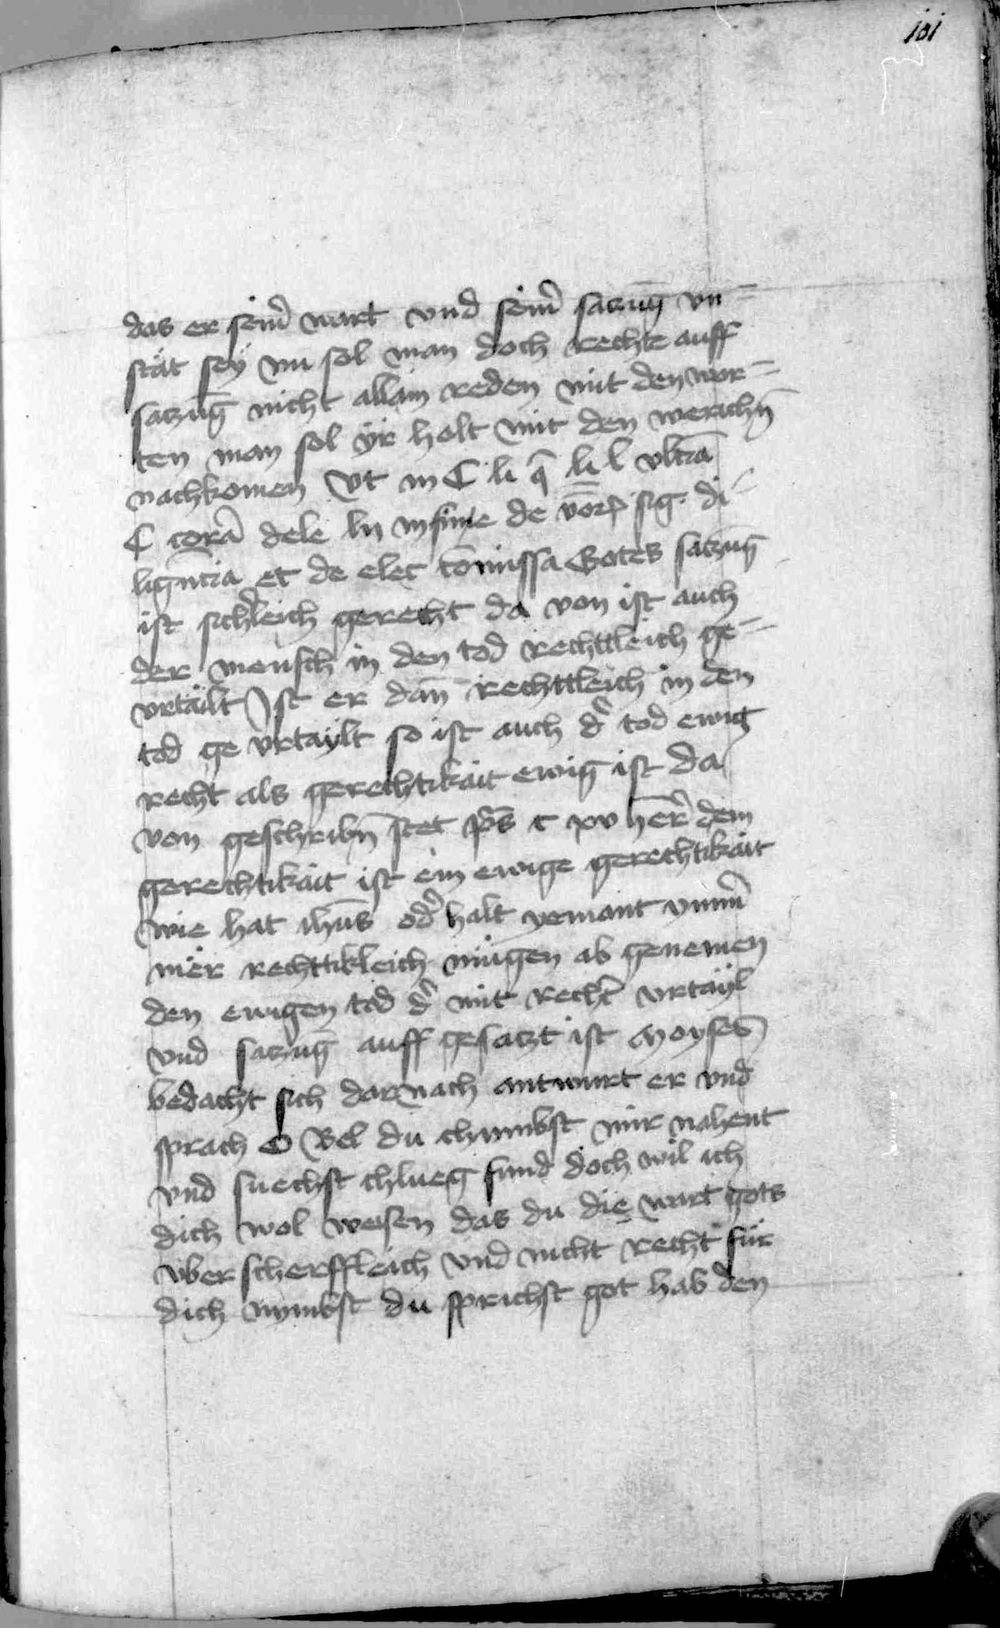 101
das er seim̄ wart vnd seim̄ satzūg vn=
stät sey nu sol man doch rechte auff
satzūg nicht allain reden mit den wor=
ten man sol yr holt mit den werichn̄
nachkomen Vt in C li q̄ li l vltra
C corā dele in fine de v̄or sig. di=
lign̄cia et de elec com̄issa Gotes satzūg
ist sich̄leich gerecht da von ist auch
der mensch in den tod rechttleich ge=
vrtailt Ist er dan̄ rechttleich in den
tod ge vrtaylt so ist auch d̄ tod ewig
recht als gerechtikait ewig ist da
von geschribn̄ stet ps̄ c xv hēr dem
gerechtikait ist ein ewige gerechtikait
wie hat ihūs od̄ halt yemant vnm̄
mër rechttikleich mügen ab genemen
den ewigen tod d̄ mit recht̄ vrtäyl
vnd satzūg auff gesatzt ist Moyses
bedacht sich darnach antwurt er vnd
sprach O Bel du chumbst mir nahent
vnd suechst chlueg fund doch wil ich
dich wol weisen das du die wart gots
vber scherffleich vnd nicht recht für
dich nymbst du sprichst got hab den